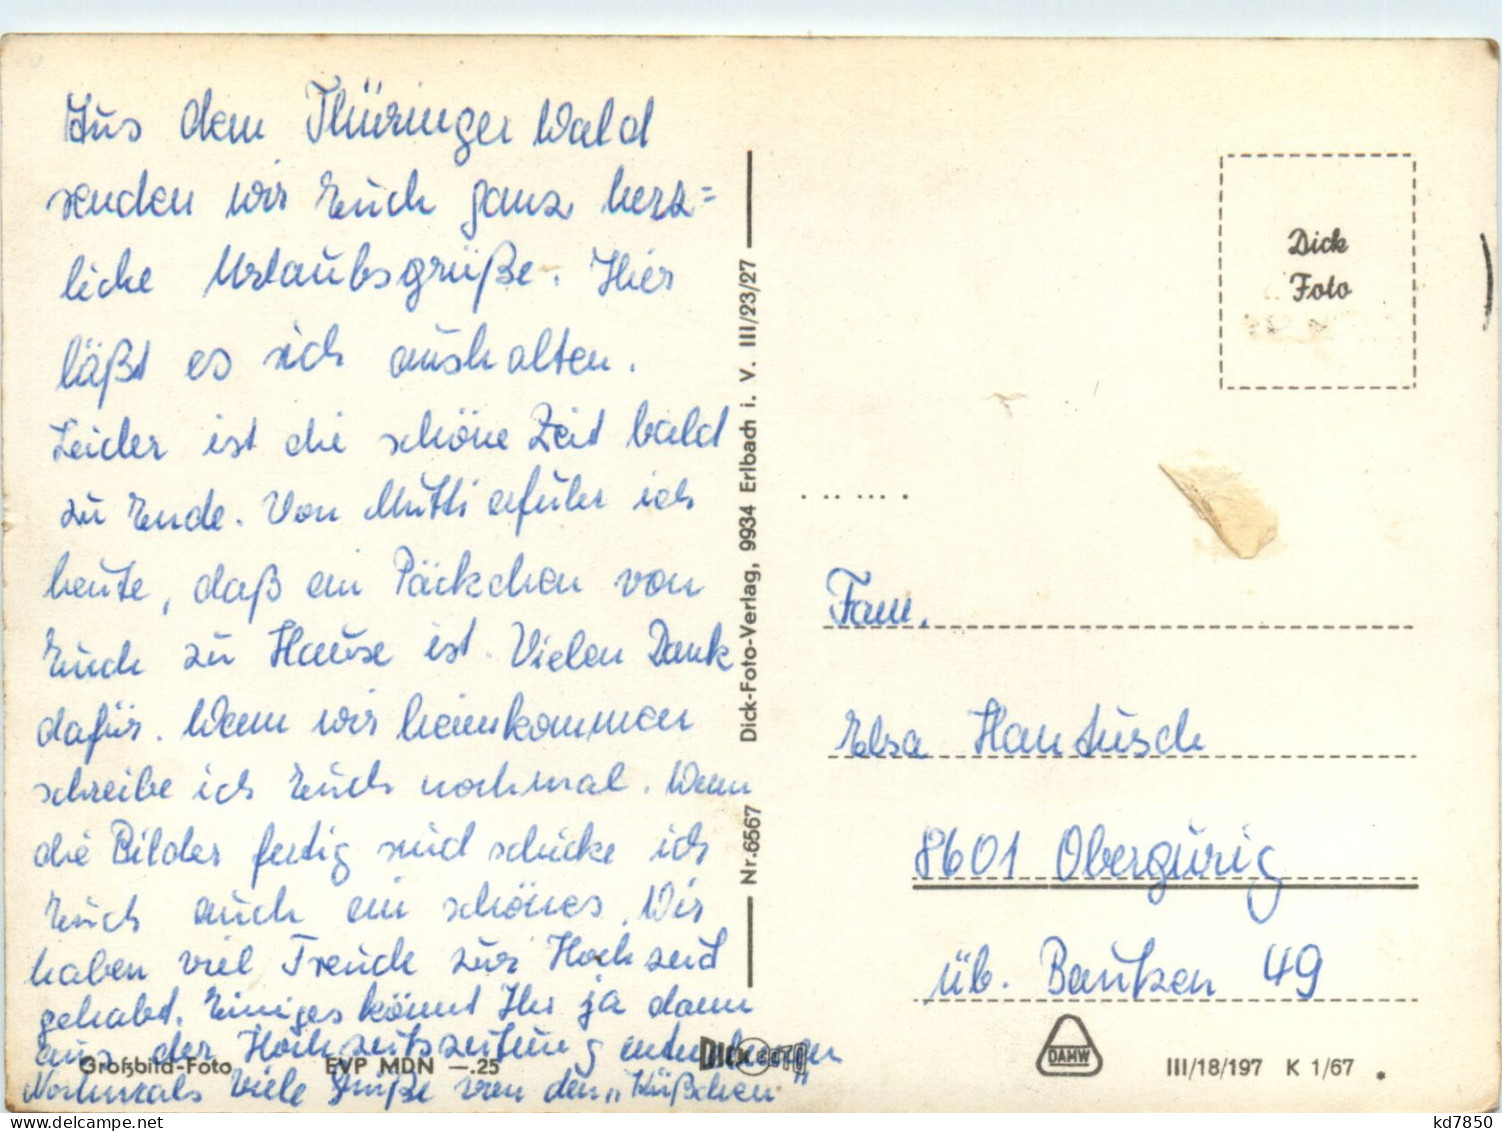 Aus dem Thüringer Wald
senden wir Euch ganz herz=
liche Urlaubsgrüße. Hier
läßt es sich aushalten.
Leider ist die schöne Zeit bald
zu Ende. Von Mutti erfuhr ich
heute, daß ein Päckchen von
Euch zu Hause ist. Vielen Dank
dafür. Wenn wir heimkommen
schreibe ich Euch nochmal. Wenn
die Bilder fertig sind schicke ich
Euch auch ein schönes. Wir
haben viel Freude zur Hochzeit
gehabt. Einiges könnt Ihr ja dann
aus der Hochzeitszeitung entnehmen
Nochmals viele Grüße von den
Großbild-Foto EVP MDN —.25
DICK FOTO
Nr. 6567 Dick-Foto-Verlag, 9934 Erlbach i. V. III/23/27
Dick
Foto
Fam.
Elsa Hantusch
8601 Obergurig
üb. Bautzen 49
DAMW
III/18/197 K 1/67
delcampe.net
kd7850